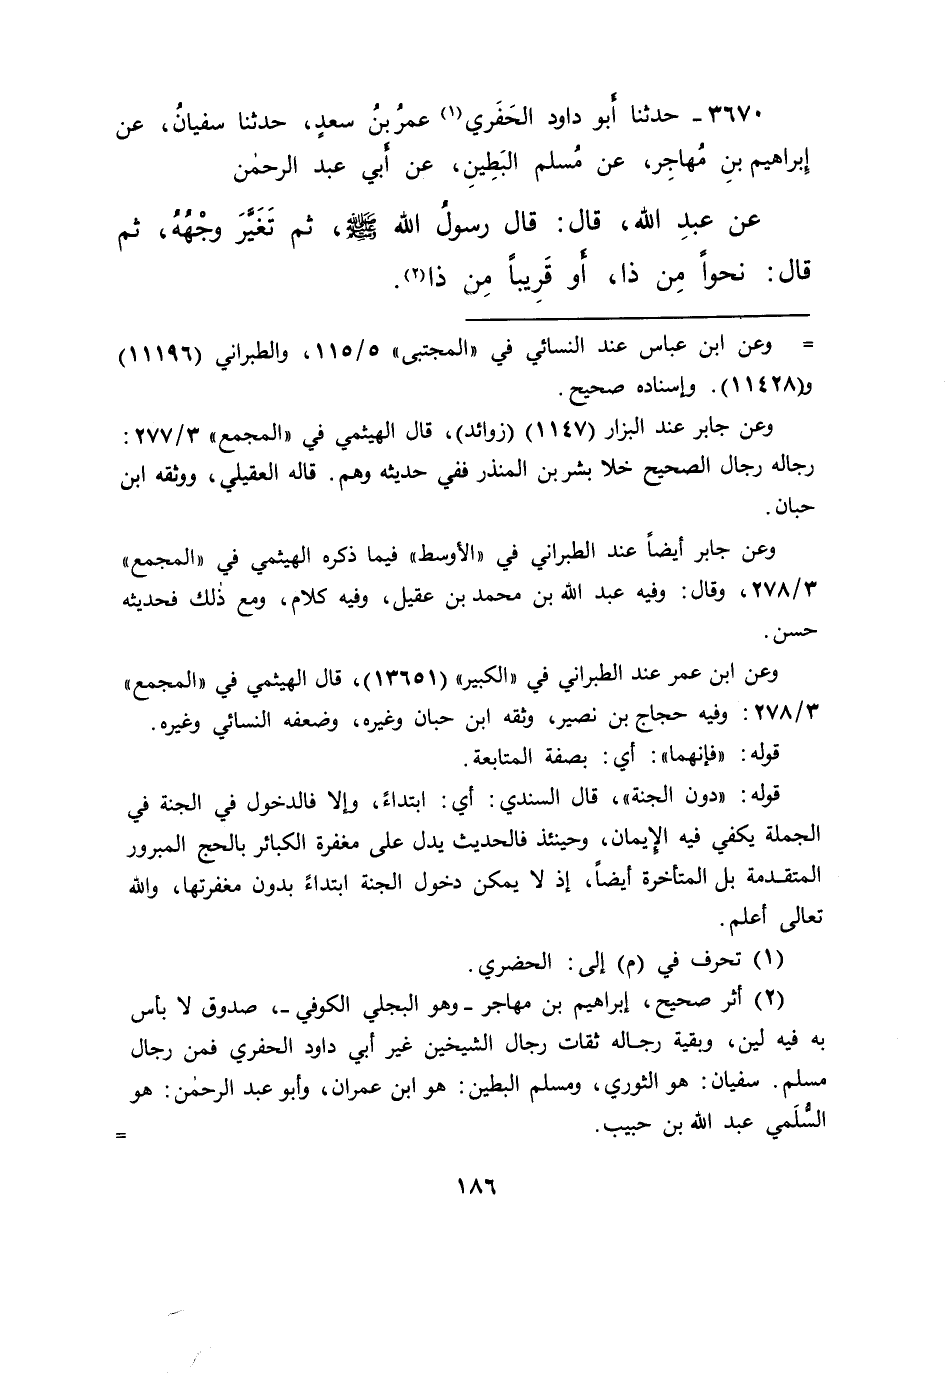 ٣٦٧٠ - حدثنا أَبو داود الحَفَري(١) عمرُ بنُ سعدٍ، حدثنا سفيانُ، عن
إبراهيم بنِ مُهاجِر، عن مُسلم البَطِينِ، عن أَبي عبد الرحمٰن
عن عبدِ الله، قال: قال رسولُ الله ﷺ، ثم تَغَيَّرَ وجْهُهُ، ثم
قال: نحواً مِن ذا، أَو قَرِيباً مِن ذا(٢).
= وعن ابن عباس عند النسائي في «المجتبى» ١١٥/٥، والطبراني (١١١٩٦)
و(١١٤٢٨). وإسناده صحيح.
وعن جابر عند البزار (١١٤٧) (زوائد)، قال الهيثمي في «المجمع» ٢٧٧/٣:
رجاله رجال الصحيح خلا بشر بن المنذر ففي حديثه وهم. قاله العقيلي، ووثقه ابن
حبان.
وعن جابر أيضاً عند الطبراني في «الأوسط» فيما ذكره الهيثمي في «المجمع»
٢٧٨/٣، وقال: وفيه عبد الله بن محمد بن عقيل، وفيه كلام، ومع ذٰلك فحديثه
حسن.
وعن ابن عمر عند الطبراني في «الكبير» (١٣٦٥١)، قال الهيثمي في «المجمع»
٢٧٨/٣: وفيه حجاج بن نصير، وثقه ابن حبان وغيره، وضعفه النسائي وغيره.
قوله: «فإنهما»: أي: بصفة المتابعة.
قوله: «دون الجنة»، قال السندي: أي: ابتداءً، وإلا فالدخول في الجنة في
الجملة يكفي فيه الإيمان، وحينئذ فالحديث يدل على مغفرة الكبائر بالحج المبرور
المتقدمة بل المتأخرة أيضاً، إذ لا يمكن دخول الجنة ابتداءً بدون مغفرتها، والله
تعالى أعلم.
(١) تحرف في (م) إلى: الحضري.
(٢) أثر صحيح، إبراهيم بن مهاجر - وهو البجلي الكوفي -، صدوق لا بأس
به فيه لين، وبقية رجاله ثقات رجال الشيخين غير أبي داود الحفري فمن رجال
مسلم. سفيان: هو الثوري، ومسلم البطين: هو ابن عمران، وأبو عبد الرحمٰن: هو
السُّلَمي عبد الله بن حبيب. =
١٨٦